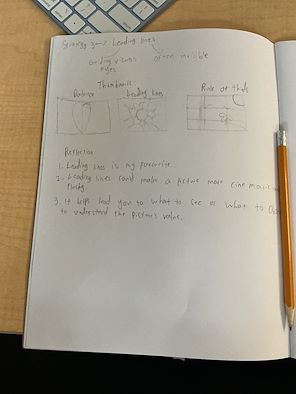 Leading lines
Guiding viewers often invisible
eyes
Thumbnails
Balance Leading lines Rule of thirds
Reflection
1. Leading lines is my favourite.
2. Leading lines could make a picture more
3. It helps lead you to what to see or what to
to understand the picture's value.